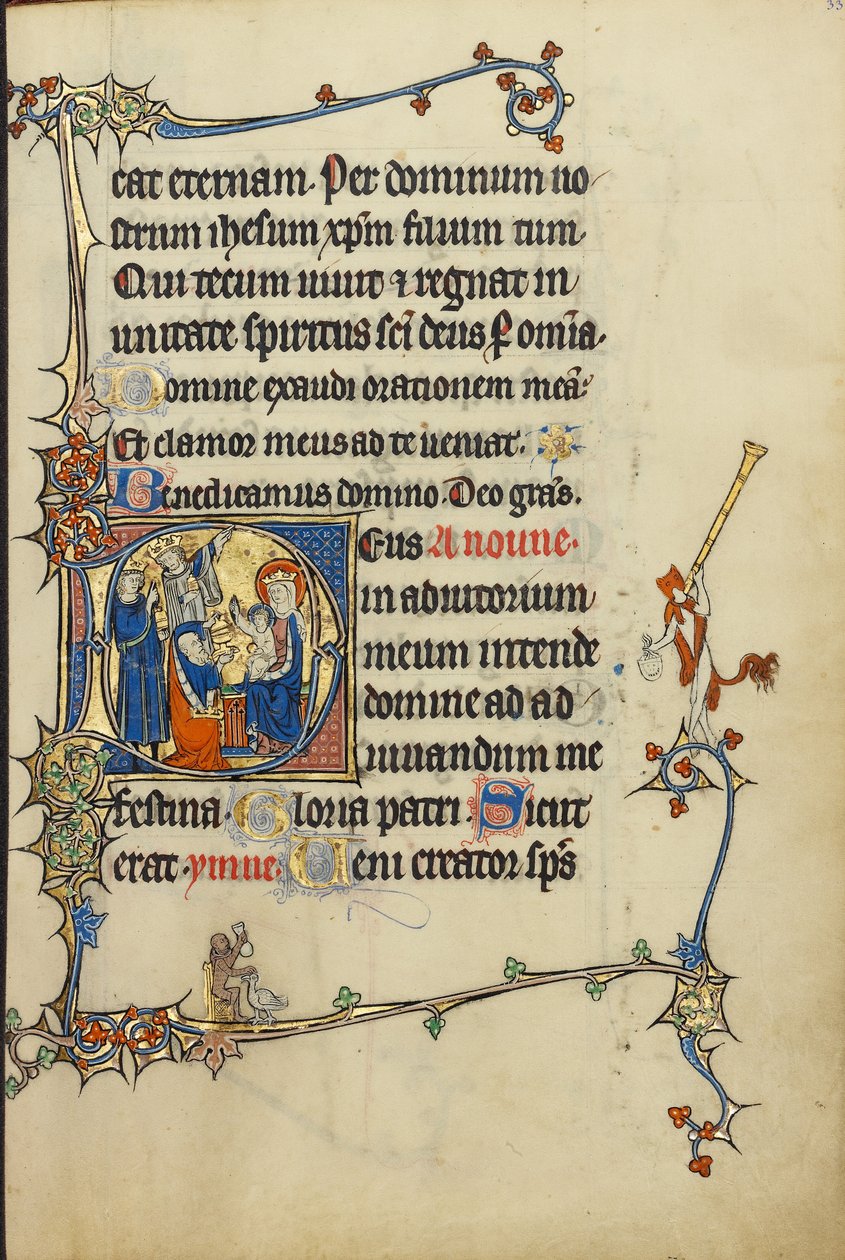 33
cat eternam. Per dominum no
strum ihesum xp̄m filium tuum.
Qui tecum uiuit ⁊ regnat in
unitate spiritus sc̄i deus ꝑ omīa.
Domine exaudi orationem meā.
Et clamor meus ad te ueniat.
Benedicamus domino. Deo grās.
Deus A noune.
in adiutorium
meum intende
domine ad ad
iuuandum me
festina. Gloria patri. Sicut
erat. ymne. Ueni creator sp̄s